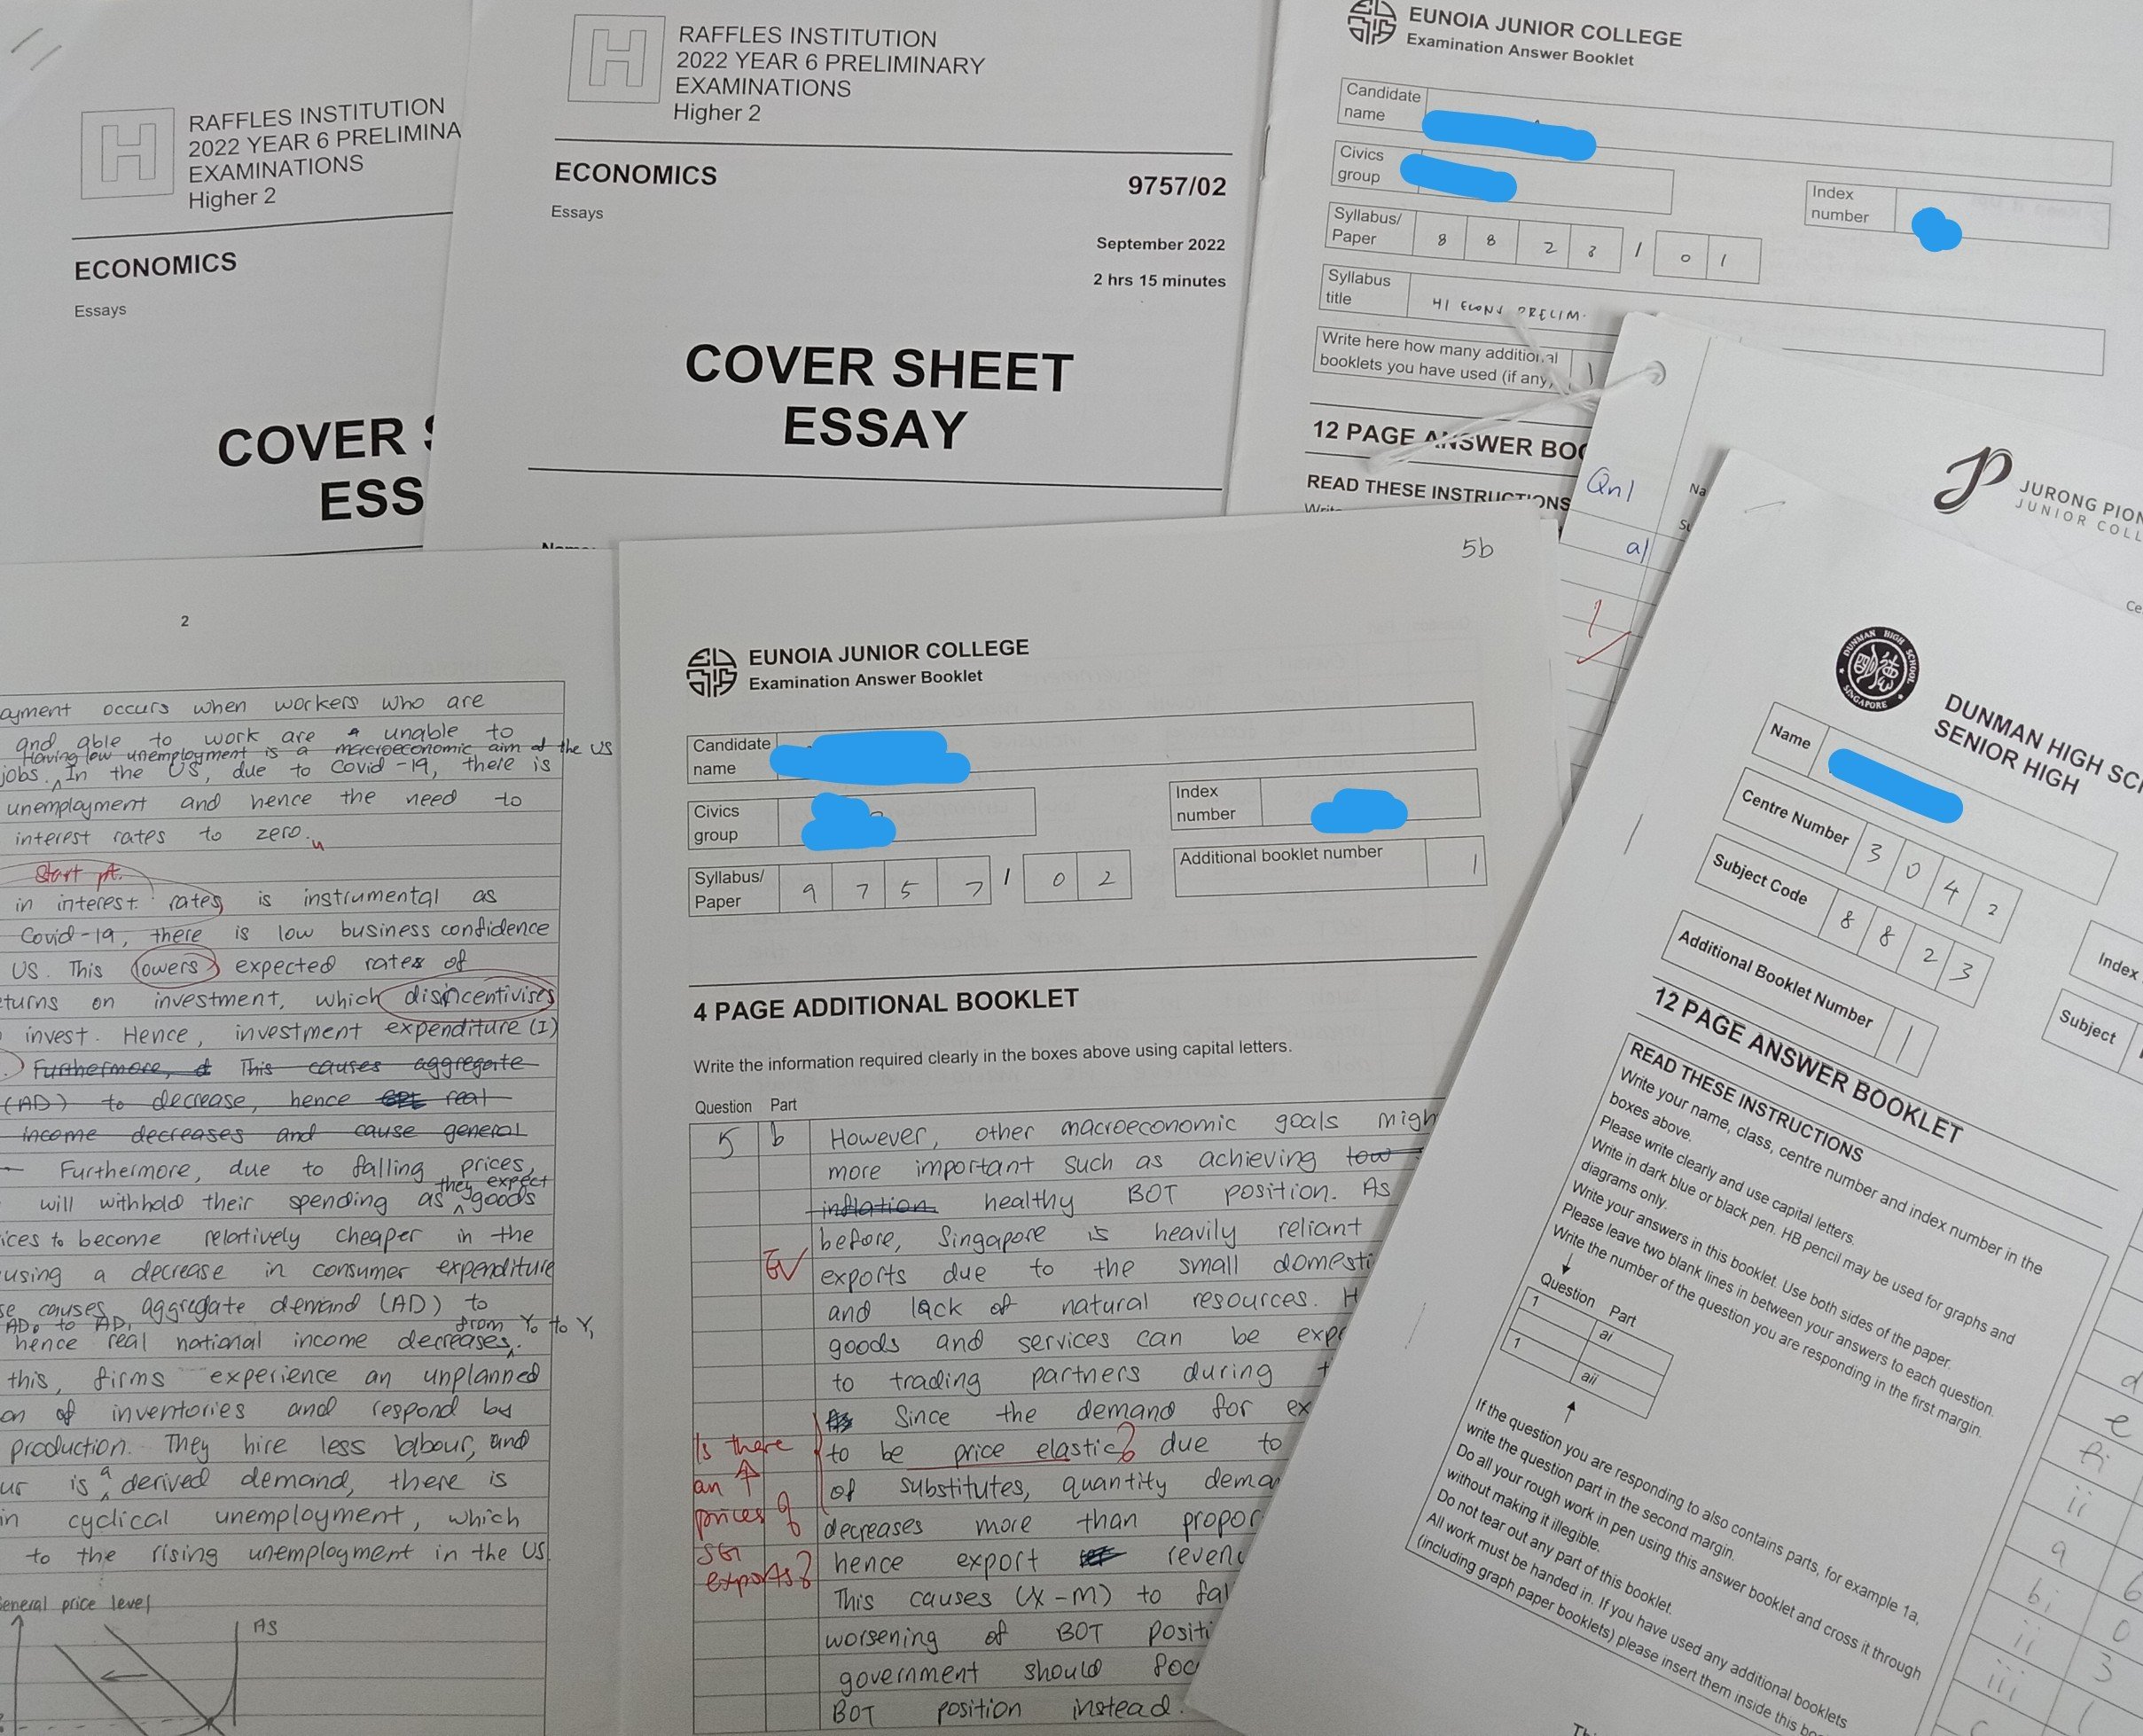 RAFFLES INSTITUTION
2022 YEAR 6 PRELIMINA
EXAMINATIONS
Higher 2
ECONOMICS
Essays
COVER
ESS
RAFFLES INSTITUTION
2022 YEAR 6 PRELIMINARY
EXAMINATIONS
Higher 2
ECONOMICS
9757/02
Essays
September 2022
2 hrs 15 minutes
COVER SHEET
ESSAY
EUNOIA JUNIOR COLLEGE
Examination Answer Booklet
Candidate
name
Civics
group
Index
number
Syllabus/
Paper
8 8 2 3 / 0 1
Syllabus
title
H1 ECONS PRELIM.
Write here how many additional
booklets you have used (if any)
1
12 PAGE ANSWER BOO
READ THESE INSTRUCTIONS
Qn1
a)
JURONG PION
JUNIOR COLL
2
ayment occurs when workers who are
and able to work are unable to
Having low unemployment is a macroeconomic aim of the US
jobs. In the US, due to Covid-19, there is
unemployment and hence the need to
interest rates to zero.
Start pt.
in interest rates is instrumental as
Covid-19, there is low business confidence
US. This lowers expected rates of
eturns on investment, which disincentivises
invest. Hence, investment expenditure (I)
Furthermore, This causes aggregate
(AD) to decrease, hence real
income decreases and cause general
Furthermore, due to falling prices,
they expect
will withhold their spending as goods
ices to become relatively cheaper in the
using a decrease in consumer expenditure
se causes aggregate demand (AD) to
AD0 to AD1
from Y0 to Y1
hence real national income decreases.
this, firms experience an unplanned
on of inventories and respond by
production. They hire less labour, and
ur is a derived demand, there is
in cyclical unemployment, which
to the rising unemployment in the US.
General price level
AS
5b
EUNOIA JUNIOR COLLEGE
Examination Answer Booklet
Candidate
name
Civics
group
Index
number
Syllabus/
Paper
9 7 5 7 / 0 2
Additional booklet number
1
4 PAGE ADDITIONAL BOOKLET
Write the information required clearly in the boxes above using capital letters.
Question Part
5 b However, other macroeconomic goals migh
more important such as achieving low
inflation healthy BOT position. As
before, Singapore is heavily reliant
EV
exports due to the small domesti
and lack of natural resources. H
goods and services can be exp
to trading partners during t
As Since the demand for ex
to be price elastic? due to
of substitutes, quantity dema
decreases more than propor
hence export revenu
This causes (X-M) to fal
worsening of BOT positi
government should foc
BOT position instead.
Is there
an ↑
prices of
SG
exports?
DUNMAN HIGH SCHOOL
SINGAPORE
DUNMAN HIGH SCH
SENIOR HIGH
Name
Centre Number
3 0 4 2
Subject Code
8 8 2 3
Index
Additional Booklet Number
1
Subject
12 PAGE ANSWER BOOKLET
READ THESE INSTRUCTIONS
Write your name, class, centre number and index number in the
boxes above.
Please write clearly and use capital letters.
Write in dark blue or black pen. HB pencil may be used for graphs and
diagrams only.
Write your answers in this booklet. Use both sides of the paper.
Please leave two blank lines in between your answers to each question.
Write the number of the question you are responding in the first margin.
Question Part
1 ai
1 aii
If the question you are responding to also contains parts, for example 1a,
write the question part in the second margin.
Do all your rough work in pen using this answer booklet and cross it through
without making it illegible.
Do not tear out any part of this booklet.
All work must be handed in. If you have used any additional booklets
(including graph paper booklets) please insert them inside this boo
d
e
fi
ii
a
bi
ii
iii
6
0
3